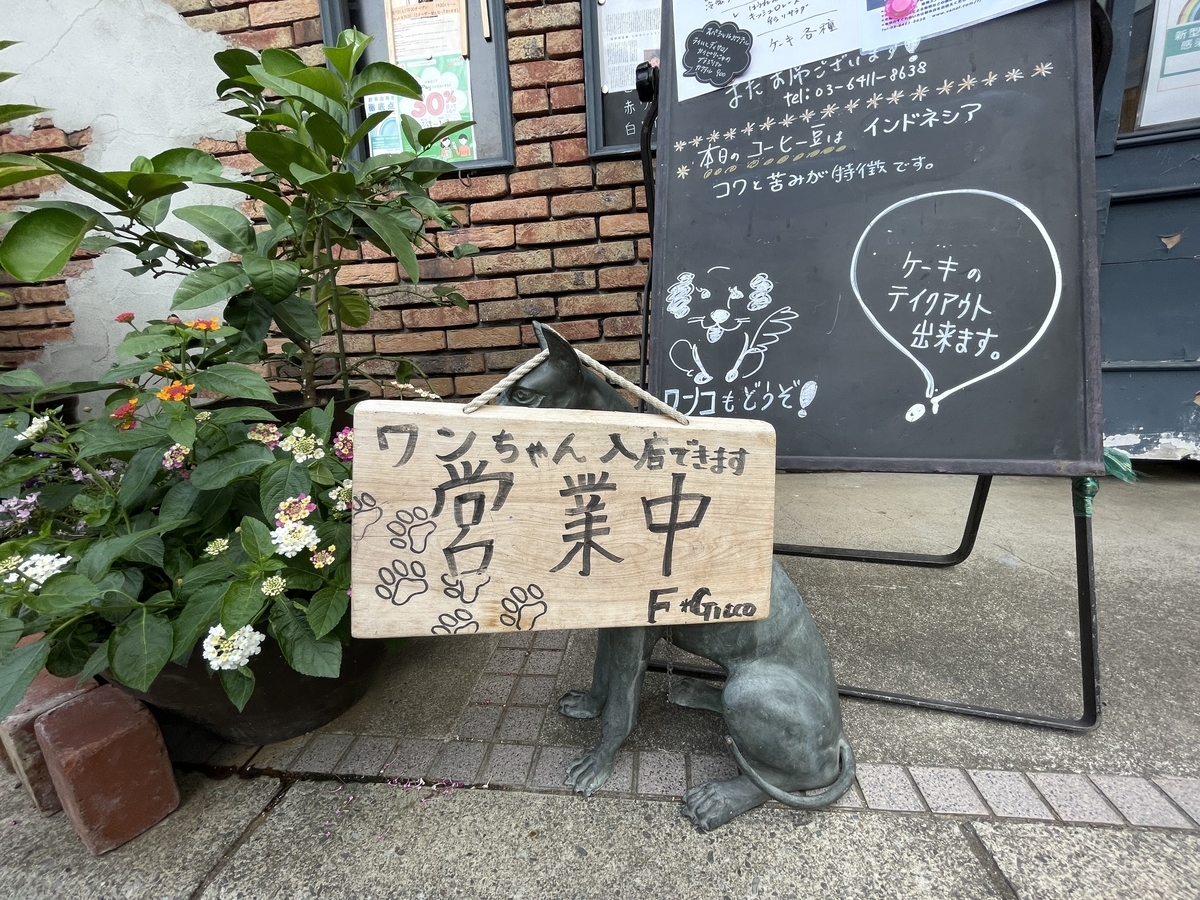 ケーキ各種
またお席ございます!
tel: 03-6411-8638
本日のコーヒー豆は インドネシア
コクと苦みが特徴です。
ケーキの
テイクアウト
出来ます。
ワンコもどうぞ!
ワンちゃん入店できます
営業中
F+Gicco
30%